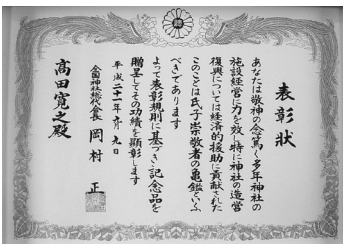 表彰状
あなたは敬神の念篤く多年神社の
施設経営に力を致し特に神社の造営
復興については経済的援助に貢献された
このことは氏子崇敬者の亀鑑といふ
べきであります
よって表彰規則に基づき記念品を
贈呈してその功績を顕彰します
平成二十一年六月九日
全国神社総代会長 岡村 正
髙田寛之殿